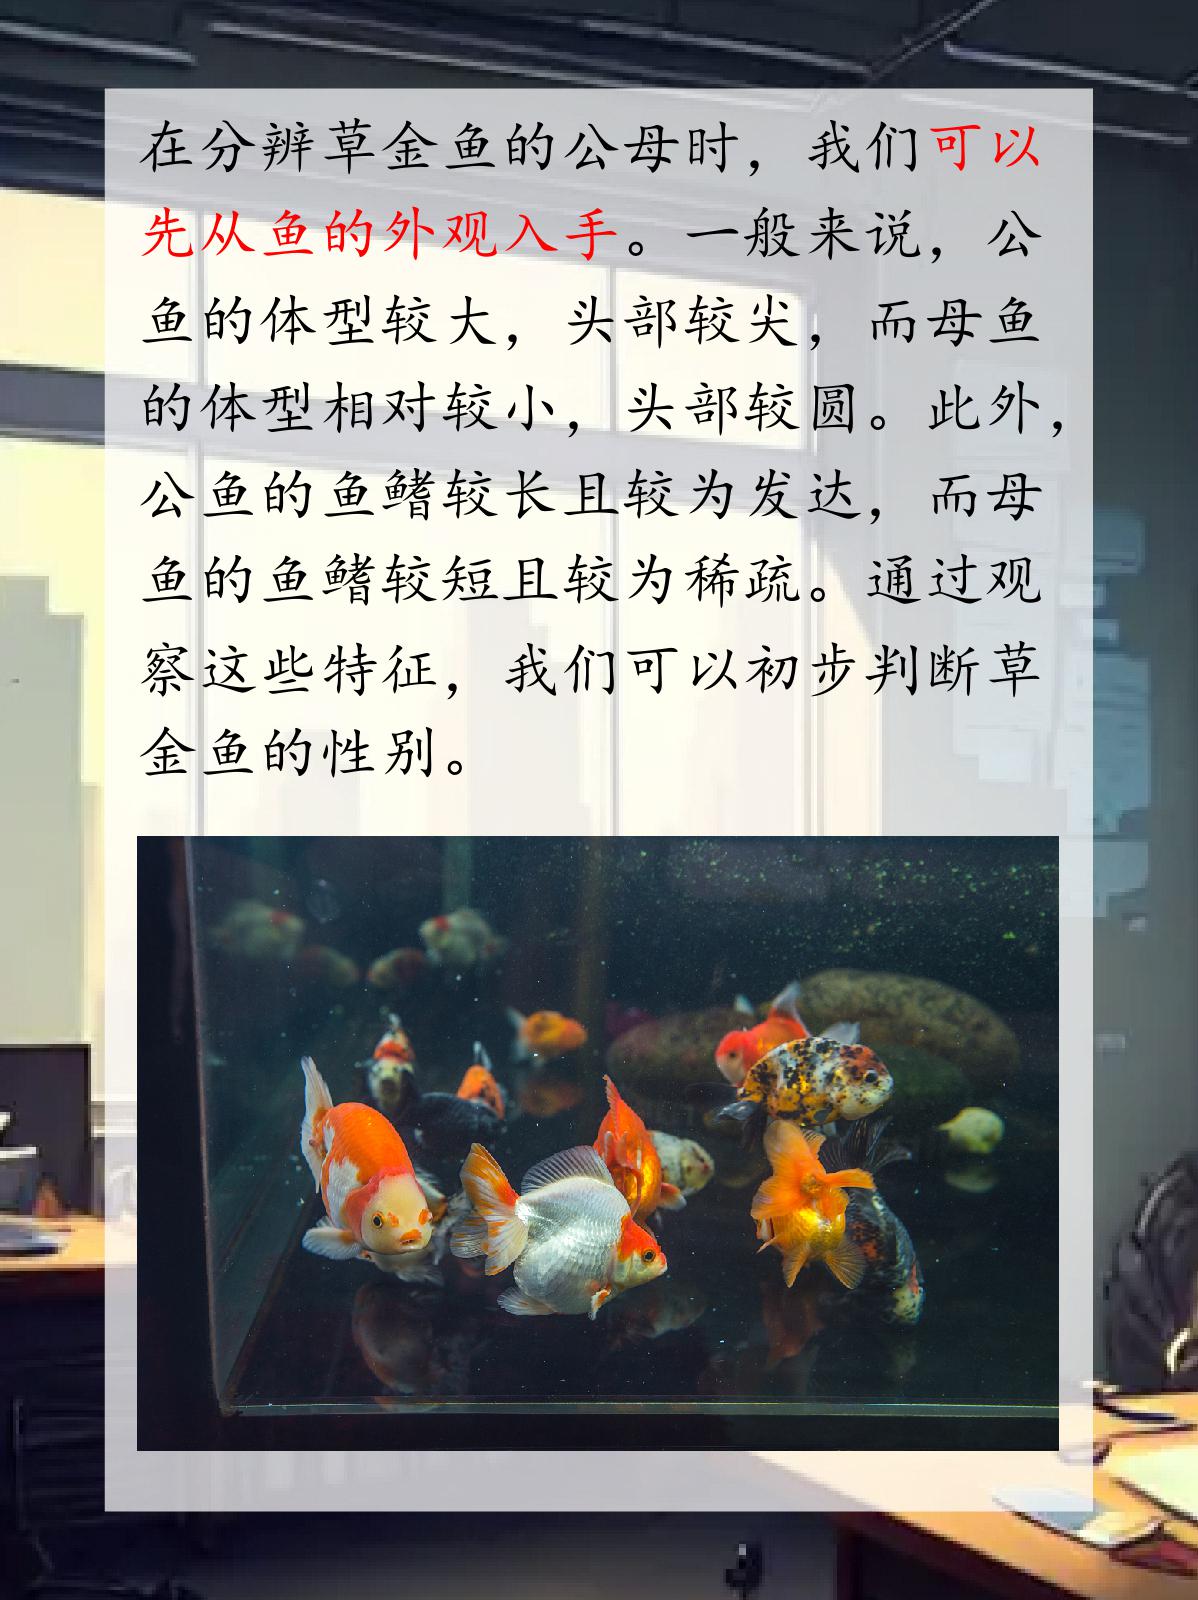 在分辨草金鱼的公母时，我们可以
先从鱼的外观入手。一般来说，公
鱼的体型较大，头部较尖，而母鱼
的体型相对较小，头部较圆。此外，
公鱼的鱼鳍较长且较为发达，而母
鱼的鱼鳍较短且较为稀疏。通过观
察这些特征，我们可以初步判断草
金鱼的性别。